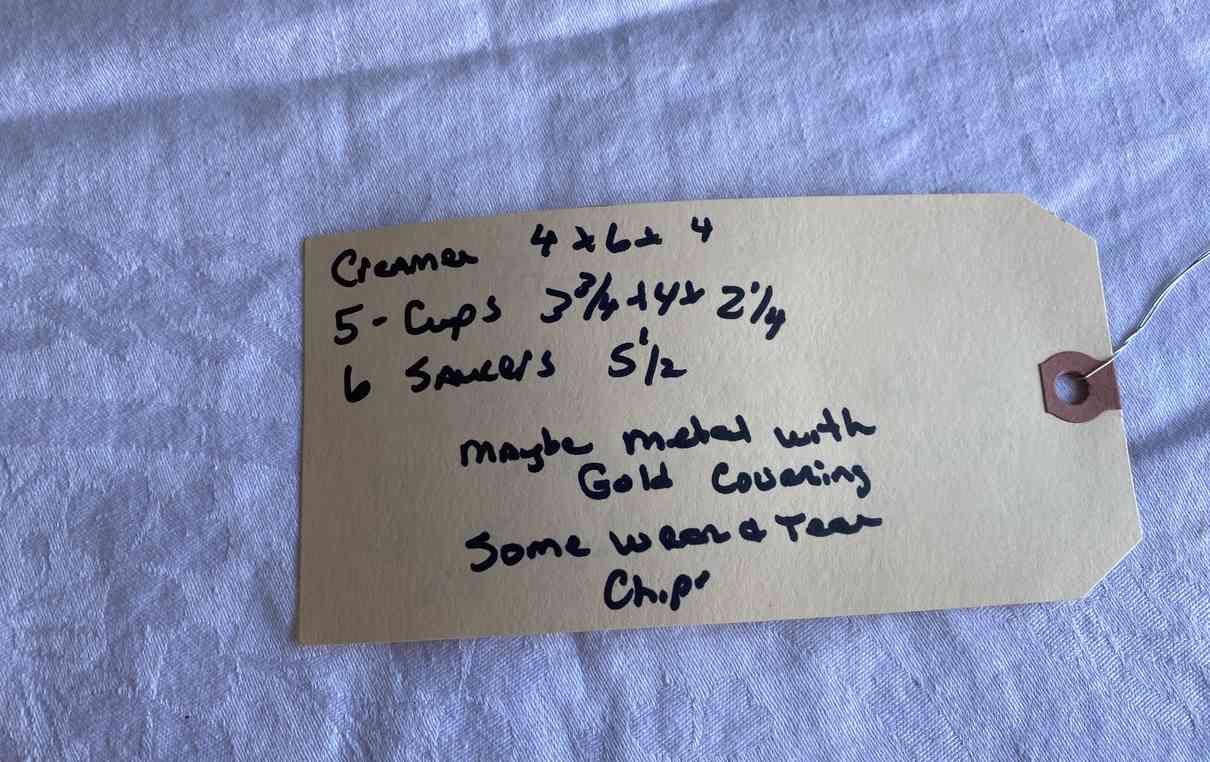 Creamer 4 x 6 x 4
5 - Cups 3 3/4 x 4 x 2 1/4
6 Saucers 5 1/2
maybe metal with
Gold Covering
Some wear & Tear
Chips